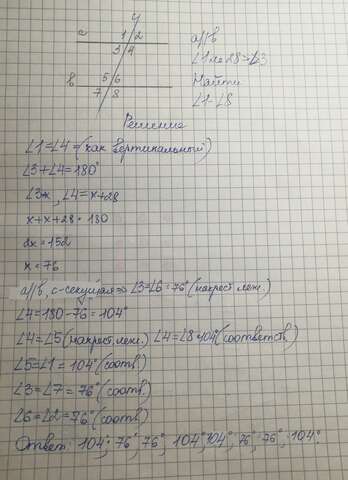 a 1 2
3 4
a//b
в 5 6
7 8
Найти
∠1-∠8
Решение
∠1=∠4=(как вертикальный)
∠3+∠4=180°
∠3x, ∠4=x+28
x+x+28=180
2x=152
x=76
a//b, c-секущая⇒ ∠3=∠6=76°(накрест леж.)
∠4=180-76=104°
∠4=∠5(накрест леж.) ∠4=∠8=104°(соответств.)
∠5=∠1=104°(соотв)
∠3=∠7=76°(соотв)
∠6=∠2=76°(соотв)
Ответ: 104°; 76°, 76°, 104°, 104°, 76°, 76°, 104°.